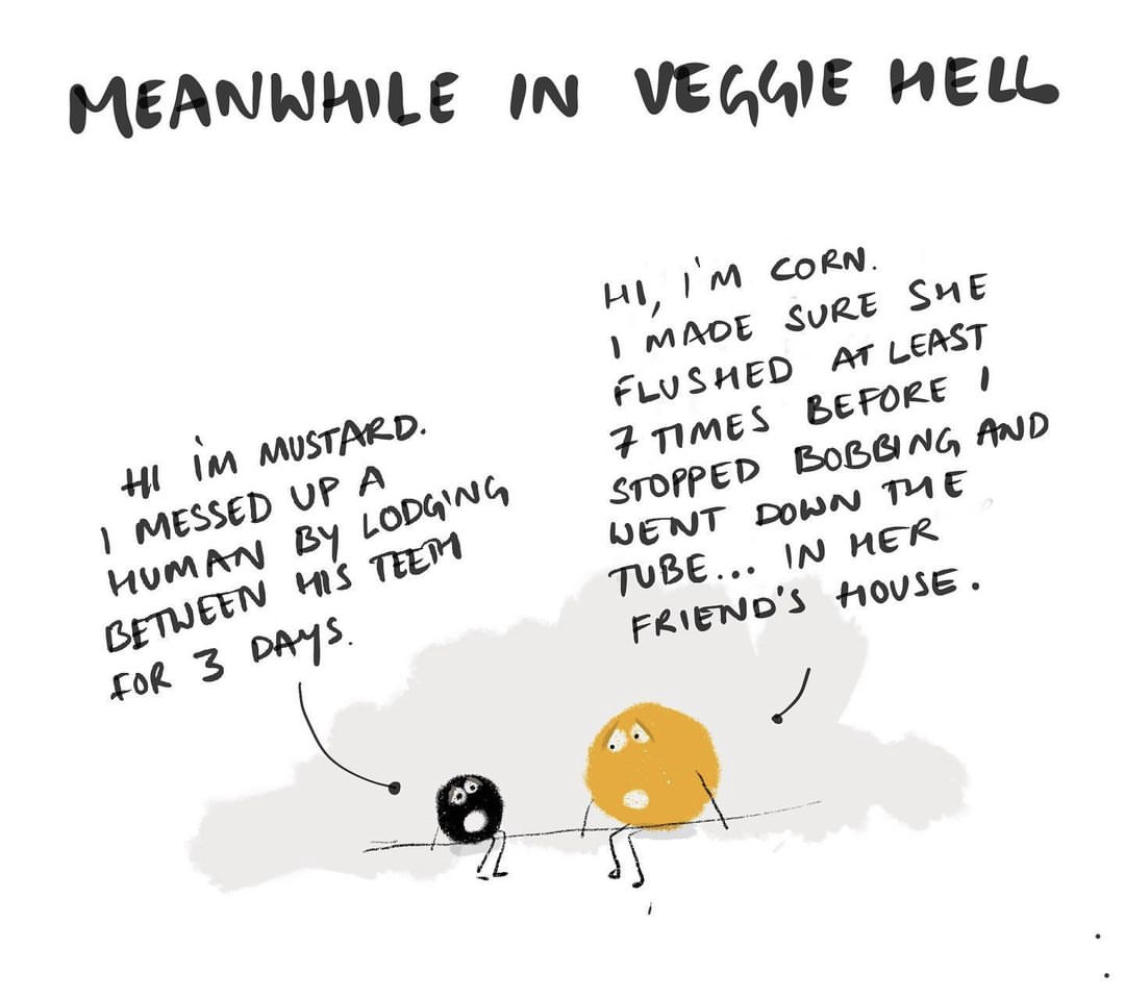 MEANWHILE IN VEGGIE HELL
HI I'M MUSTARD.
I MESSED UP A
HUMAN BY LODGING
BETWEEN HIS TEETH
FOR 3 DAYS.
HI, I'M CORN.
I MADE SURE SHE
FLUSHED AT LEAST
7 TIMES BEFORE I
STOPPED BOBBING AND
WENT DOWN THE
TUBE... IN HER
FRIEND'S HOUSE.